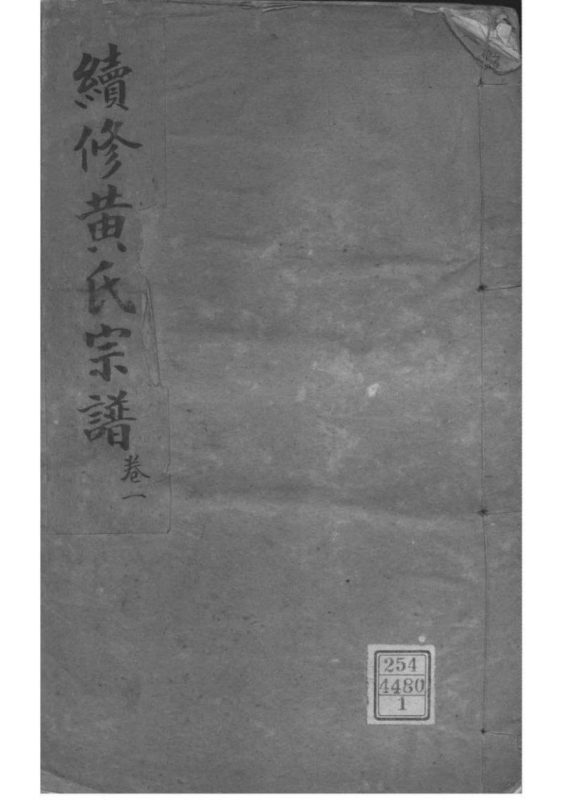 續修黄氏宗譜
卷一
254
4480
1